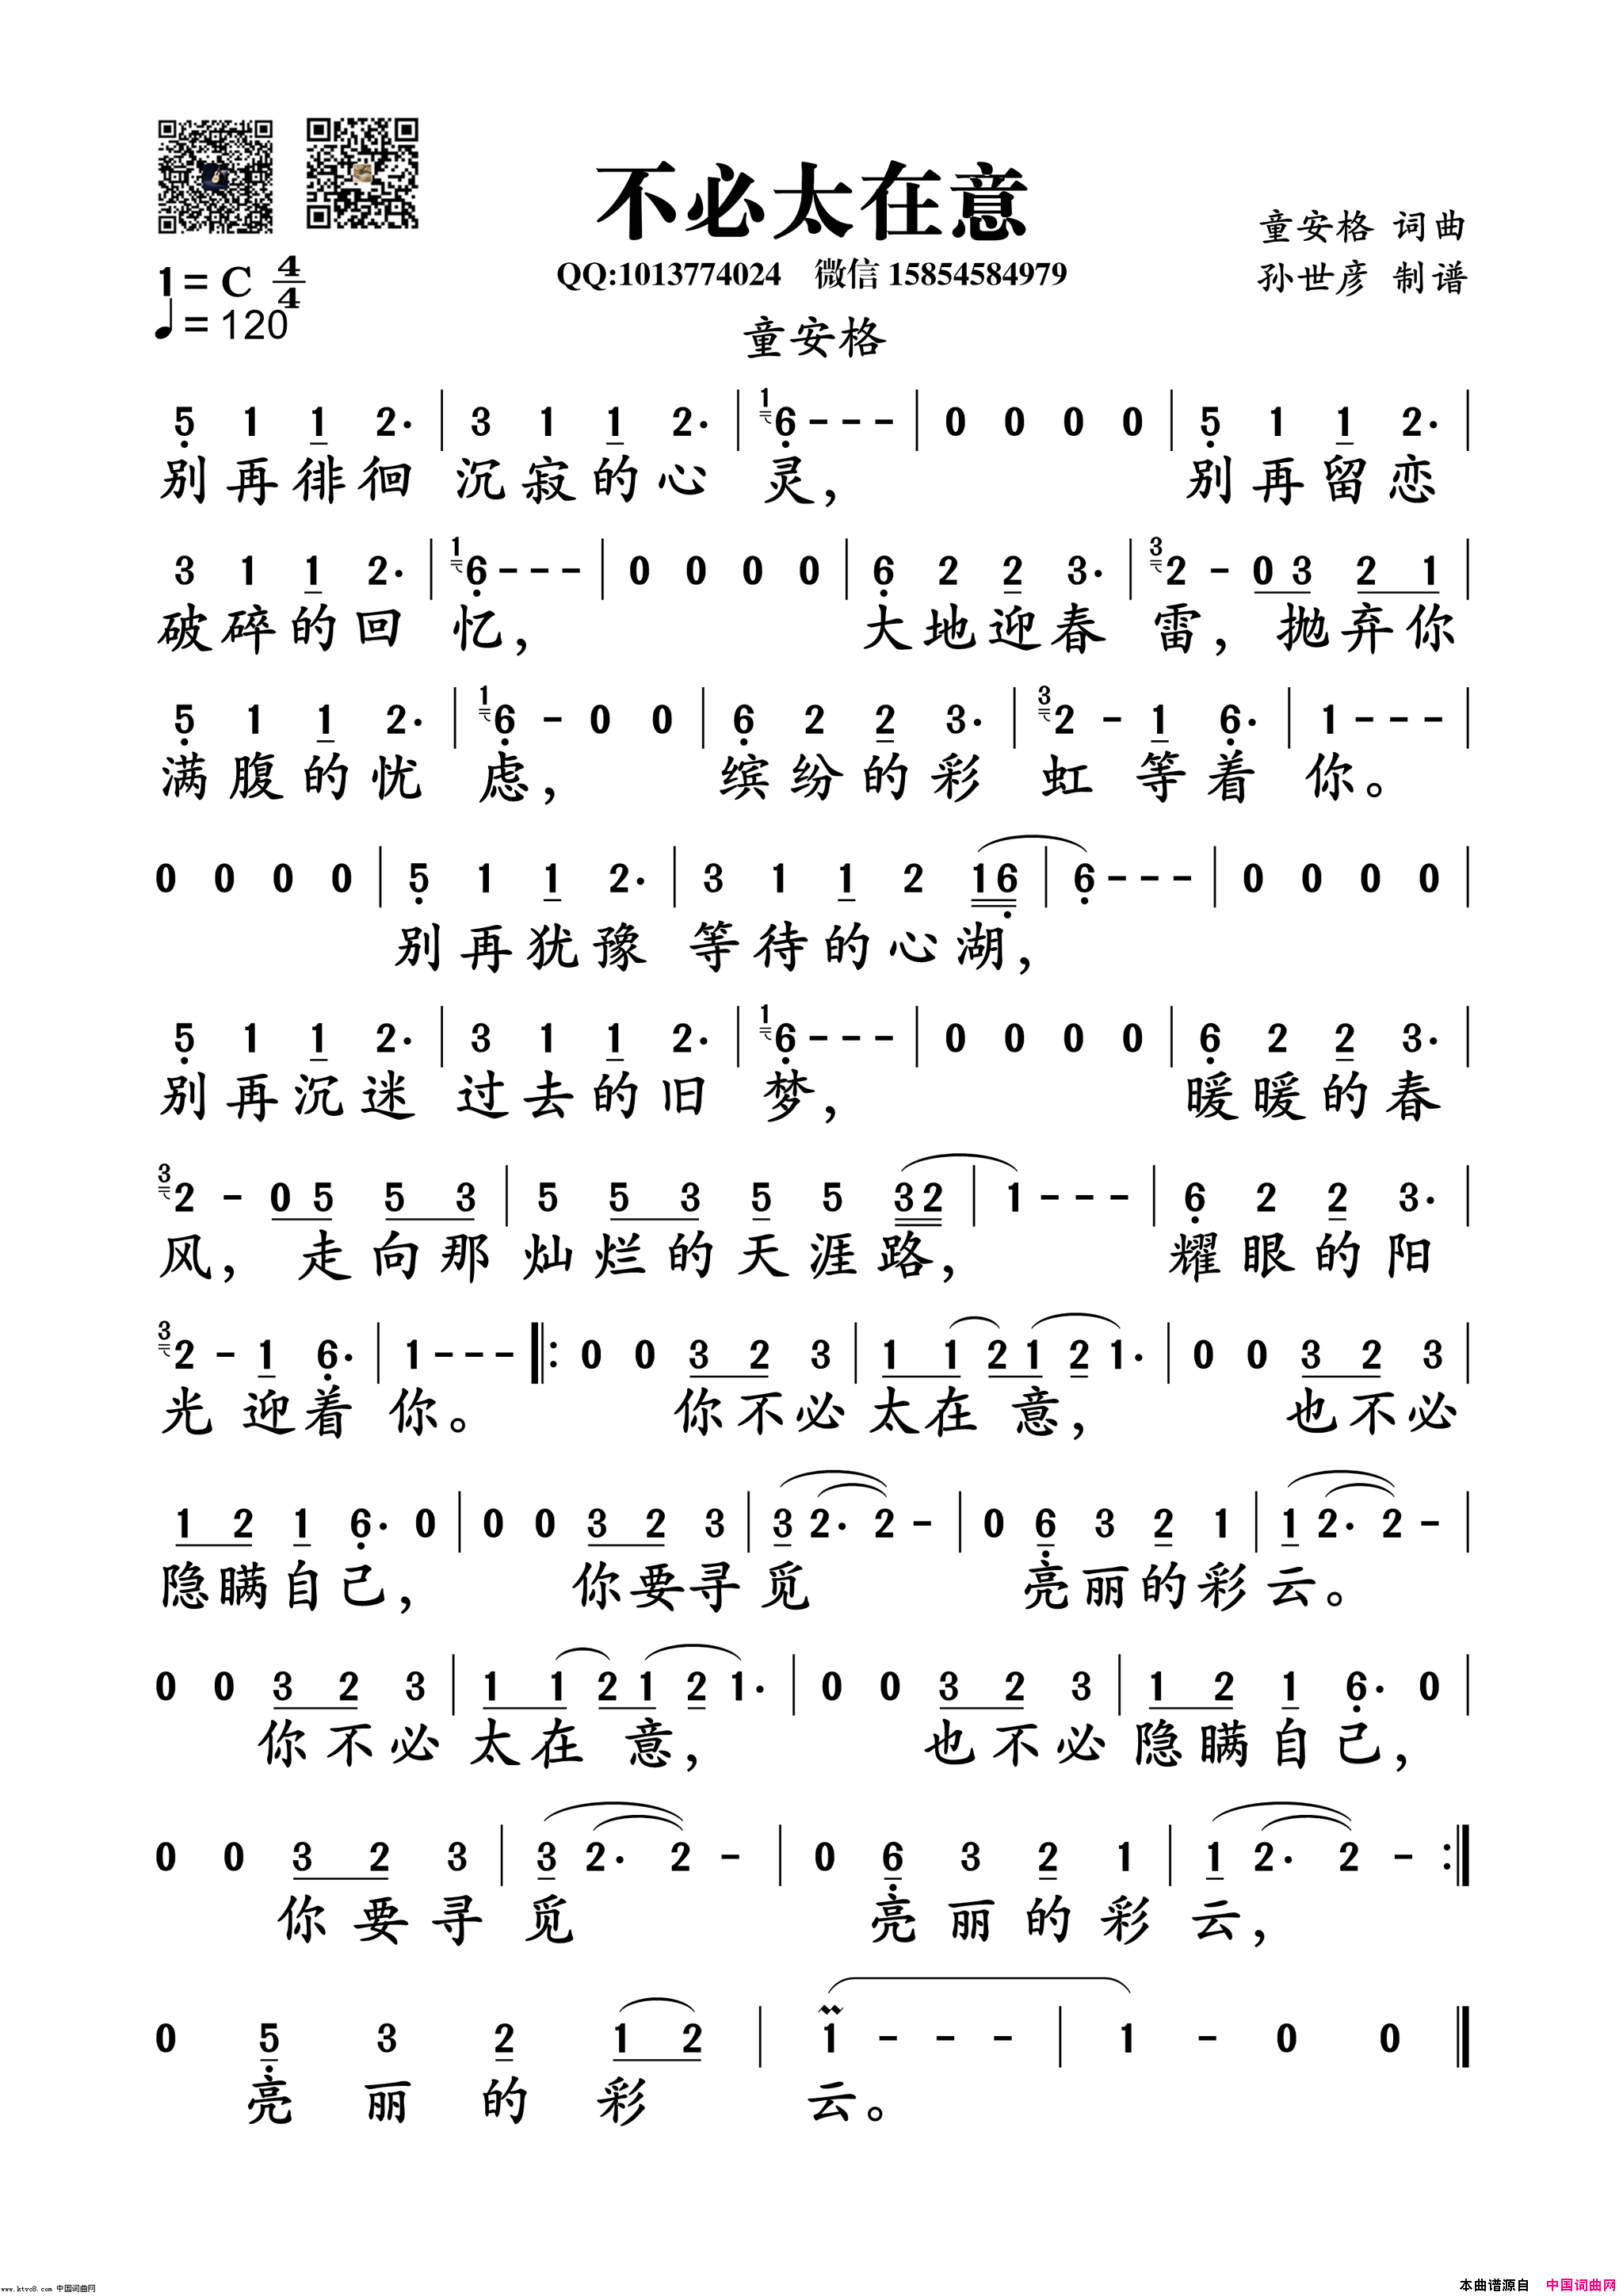 不必太在意
童安格 词曲
QQ:1013774024 微信 15854584979
孙世彦 制谱
1= C 4/4
♩= 120
童安格
5 1 1 2. | 3 1 1 2. | 1 6 - - - | 0 0 0 0 | 5 1 1 2. |
别再徘徊 沉寂的心 灵, 别再留恋
3 1 1 2. | 1 6 - - - | 0 0 0 0 | 6 2 2 3. | 3 2 - 0 3 2 1 |
破碎的回 忆, 大地迎春 雷, 抛弃你
5 1 1 2. | 1 6 - 0 0 | 6 2 2 3. | 3 2 - 1 6. | 1 - - - |
满腹的忧 虑, 缤纷的彩 虹 等着 你。
0 0 0 0 | 5 1 1 2. | 3 1 1 2 1 6 | 6 - - - | 0 0 0 0 |
别再犹豫 等待的心湖,
5 1 1 2. | 3 1 1 2. | 1 6 - - - | 0 0 0 0 | 6 2 2 3. |
别再沉迷 过去的旧 梦, 暖暖的春
3 2 - 0 5 5 3 | 5 5 3 5 5 3 2 | 1 - - - | 6 2 2 3. |
风, 走向那 灿烂的天涯路, 耀眼的阳
3 2 - 1 6. | 1 - - - |: 0 0 3 2 3 | 1 1 2 1 2 1. | 0 0 3 2 3 |
光 迎着 你。 你不必 太在 意, 也不必
1 2 1 6. 0 | 0 0 3 2 3 | 3 2. 2 - | 0 6 3 2 1 | 1 2. 2 - |
隐瞒自己, 你要寻 觅 亮丽的彩 云。
0 0 3 2 3 | 1 1 2 1 2 1. | 0 0 3 2 3 | 1 2 1 6. 0 |
你不必 太在 意, 也不必 隐瞒自己,
0 0 3 2 3 | 3 2. 2 - | 0 6 3 2 1 | 1 2. 2 - :|
你要寻 觅 亮丽的彩 云,
0 5 3 2 1 2 | 1 - - - | 1 - 0 0 ||
亮丽的彩 云。
www.ktvc8.com 中国词曲网
本曲谱源自 中国词曲网